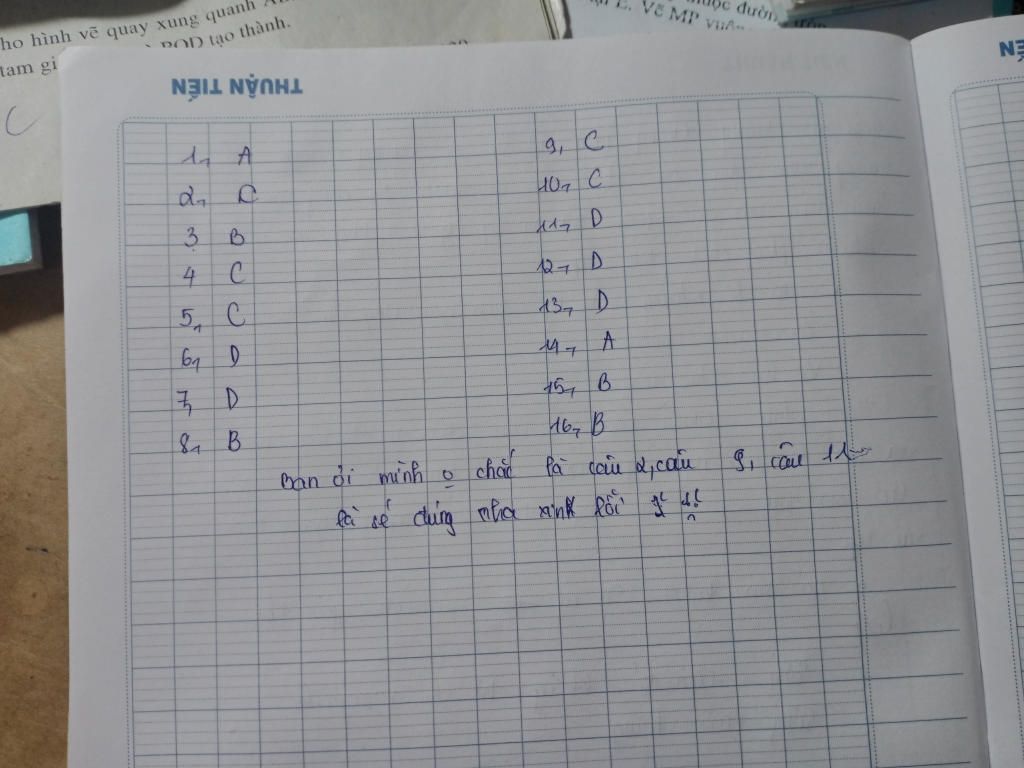 ho hình vẽ quay xung quanh
BOD tạo thành.
tam gi
E. Vẽ MP
C
THUẬN TIẾN
1, A
2, C
3 B
4 C
5, C
6, D
7, D
8, B
9, C
10, C
11, D
12, D
13, D
14, A
15, B
16, B
Bạn ơi mình o chắc là câu 2, câu 9, câu 11
là sẽ đúng nha xink lỗi